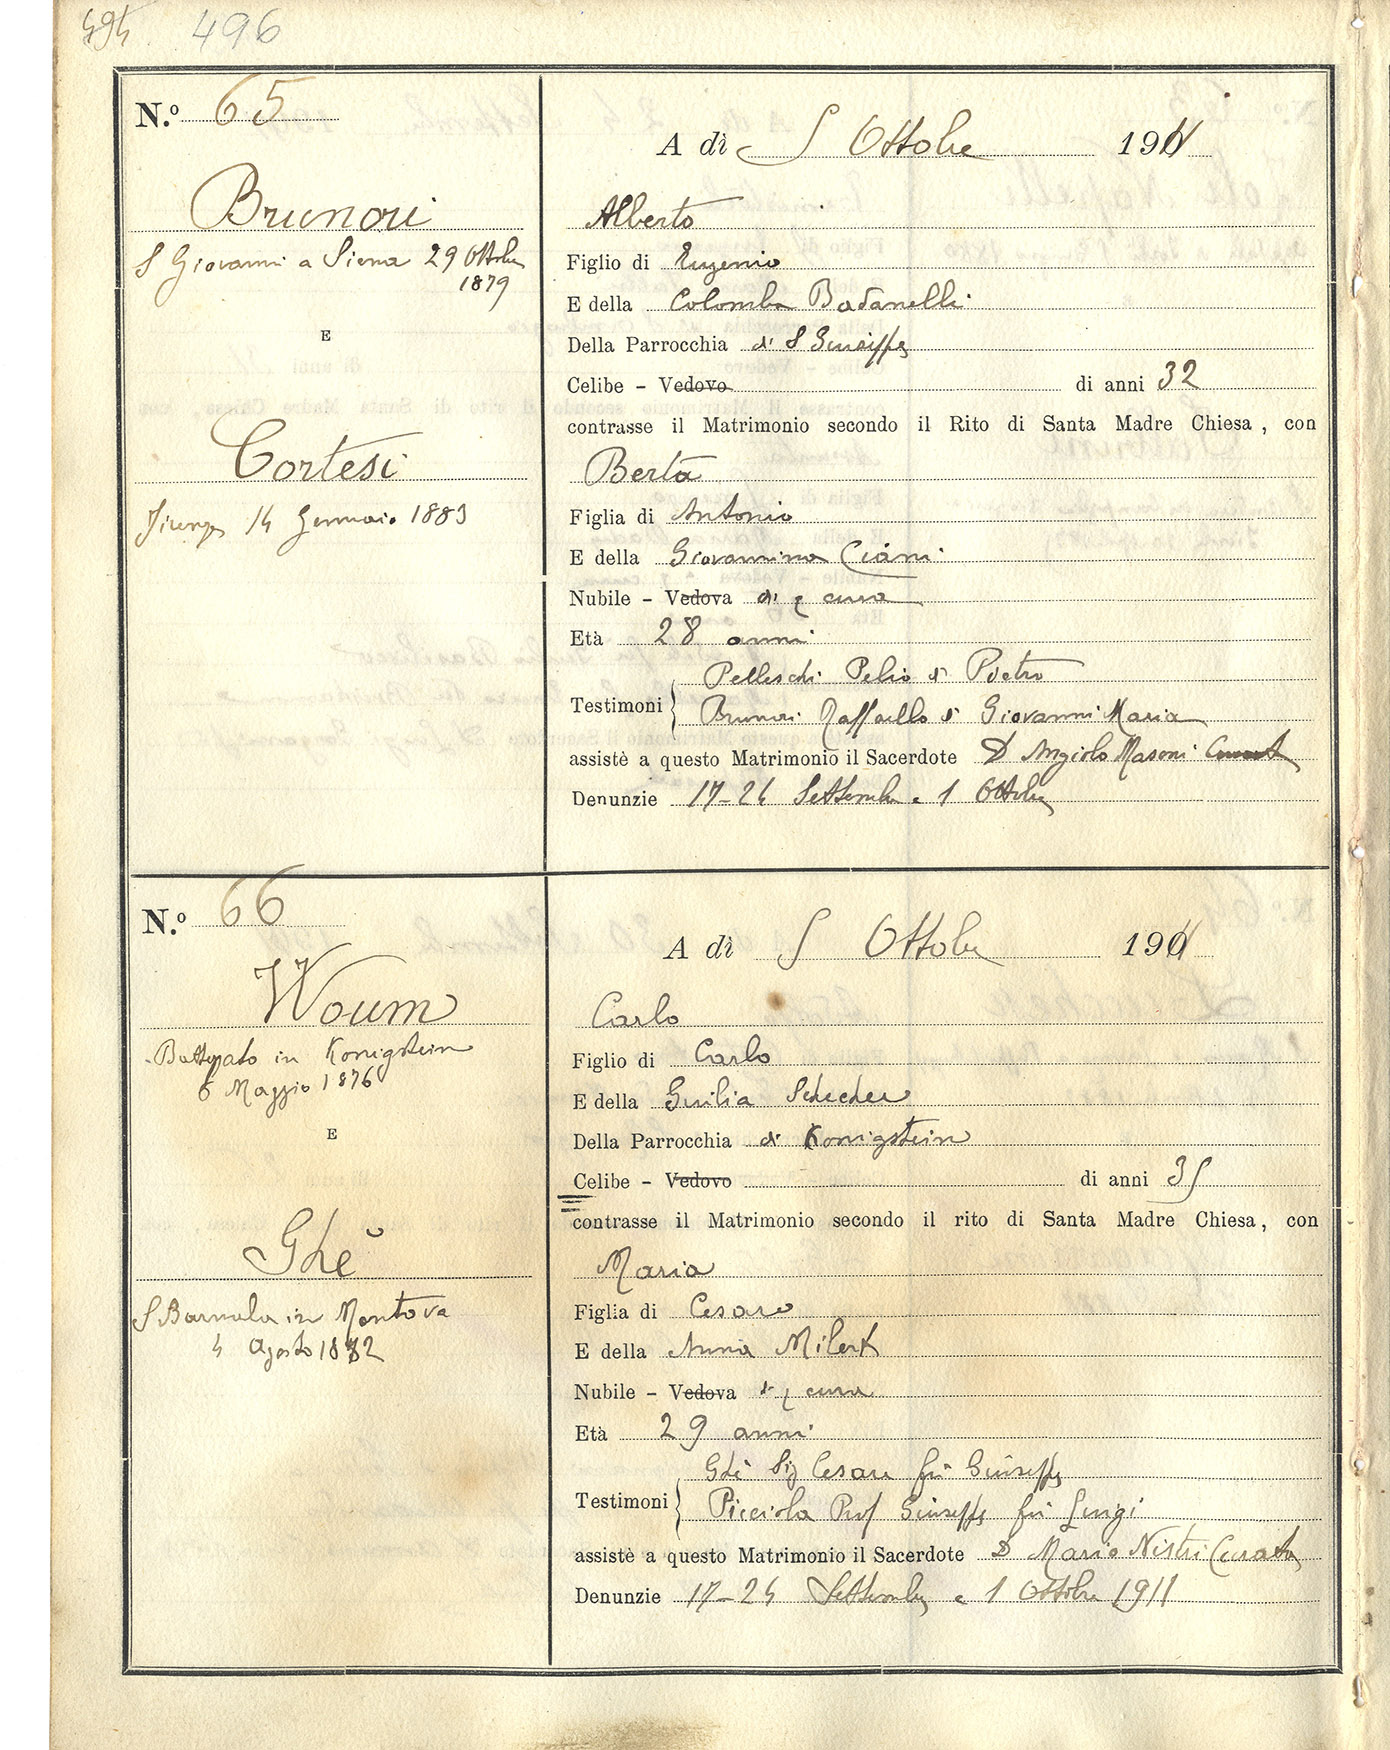 494 496
N.º 65
A dì 5 Ottobre 1911
Brunori
S Giovanni a Siena 29 Ottobre
1879
E
Cortesi
Firenze 14 Gennaio 1883
Alberto
Figlio di Eugenio
E della Colomba Badanelli
Della Parrocchia di S Giuseppe
Celibe - Vedovo di anni 32
contrasse il Matrimonio secondo il Rito di Santa Madre Chiesa, con
Berta
Figlia di Antonio
E della Giovannina Ciani
Nubile - Vedova di q cura
Età 28 anni
Testimoni { Pelleschi Pelio di Pietro
Brunori Raffaello di Giovanni Maria
assistè a questo Matrimonio il Sacerdote D Angiolo Masoni
Denunzie 17-24 Settembre e 1 Ottobre
N.º 66
A dì 5 Ottobre 1911
Woum
Battezzato in Konigstein
6 Maggio 1876
E
Ghè
S Barnaba in Mantova
4 Agosto 1882
Carlo
Figlio di Carlo
E della Giulia
Della Parrocchia di Konigstein
Celibe - Vedovo di anni 35
contrasse il Matrimonio secondo il rito di Santa Madre Chiesa, con
Maria
Figlia di Cesare
E della Anna Milert
Nubile - Vedova di q cura
Età 29 anni
Testimoni { Ghè Sig Cesare fu Giuseppe
Picciola Prof Giuseppe fu Luigi
assistè a questo Matrimonio il Sacerdote D Mario Nistri Curato
Denunzie 17-24 Settembre e 1 Ottobre 1911